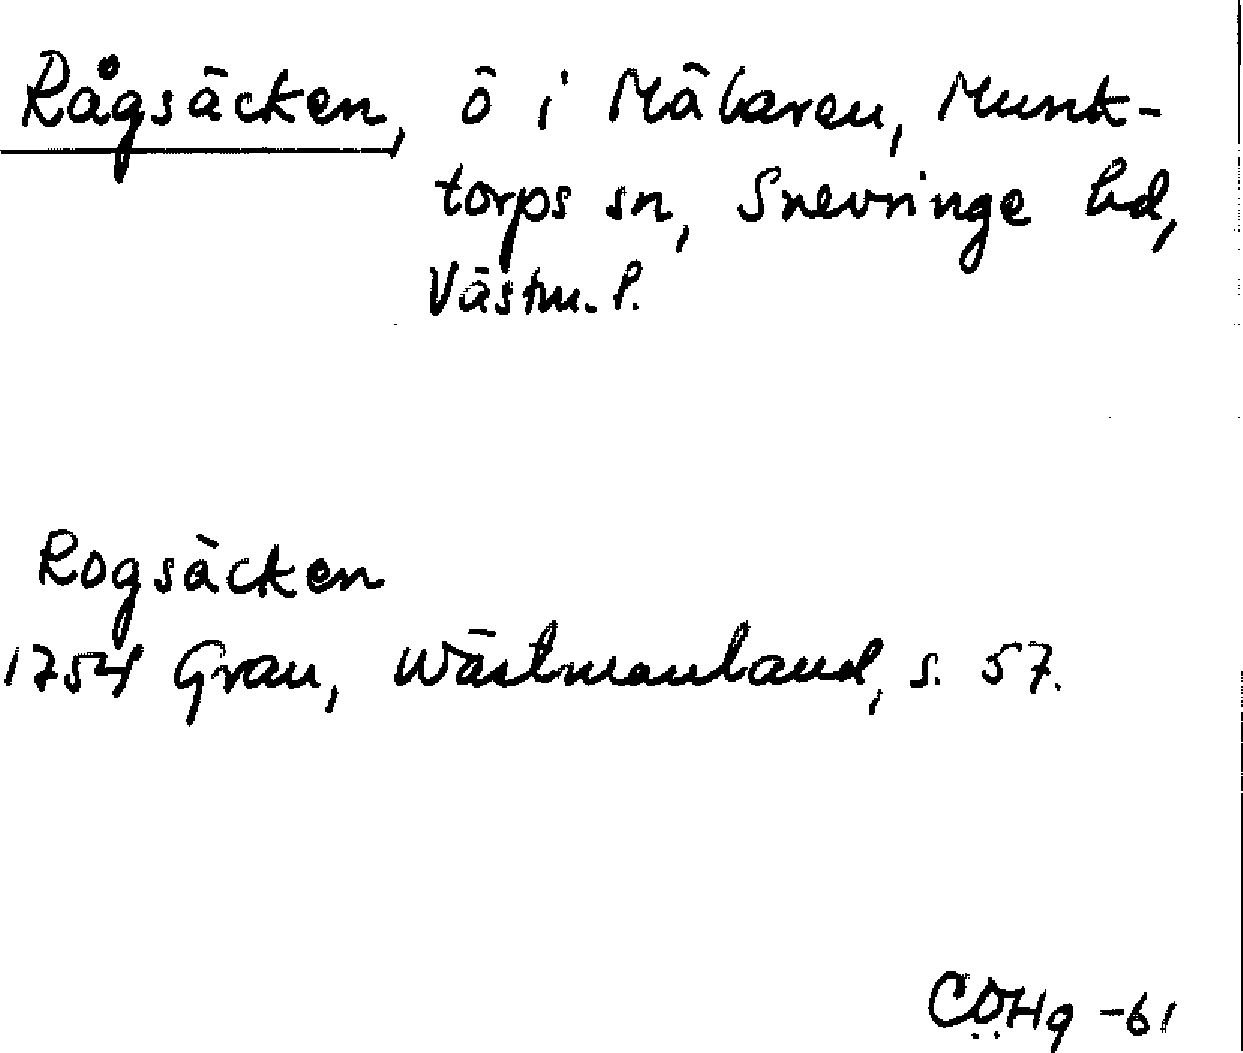 Rågsäcken, ö i Mälaren, Munk-
torps sn, Snevringe hd,
Västm. l.
Rogsäcken
1754 Grau, Wästmanland, s. 57.
CÖHg -61